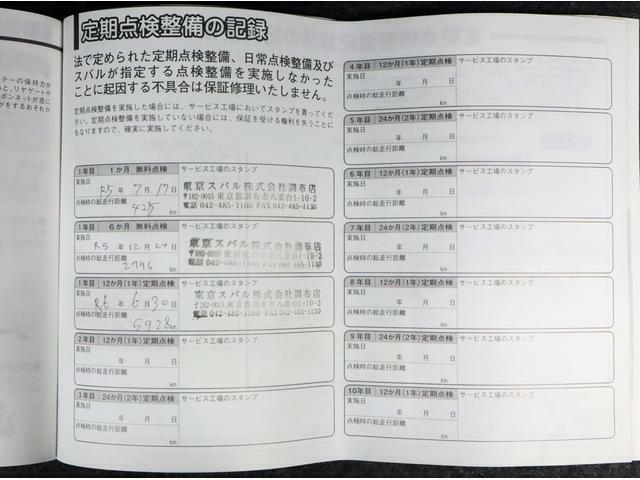 定期点検整備の記録
法で定められた定期点検整備、日常点検整備及び
スバルが指定する点検整備を実施しなかった
ことに起因する不具合は保証修理いたしません。
定期点検整備を実施した場合には、サービス工場においてスタンプを貰ってくだ
さい。定期点検整備を実施していない場合には、保証を受ける権利を失うことに
もなりますので、確実に実施してください。
1年目 1か月 無料点検 サービス工場のスタンプ
実施日
R5年 7月 17日
点検時の総走行距離
425 km
東京スバル株式会社調布店
〒182-0015 東京都調布市八雲台1-10-2
電話 042-485-1100 FAX 042-485-1130
1年目 6か月 無料点検 サービス工場のスタンプ
実施日
R5年 12月 24日
点検時の総走行距離
2796 km
東京スバル株式会社調布店
〒182-0015 東京都調布市八雲台1-10-2
電話 042-485-1100 FAX 042-485-1130
1年目 12か月(1年)定期点検 サービス工場のスタンプ
実施日
R6年 6月 30日
点検時の総走行距離
5928 km
東京スバル株式会社調布店
〒182-0015 東京都調布市八雲台1-10-2
電話 042-485-1100 FAX 042-485-1130
2年目 12か月(1年)定期点検 サービス工場のスタンプ
実施日
年 月 日
点検時の総走行距離
km
3年目 24か月(2年)定期点検 サービス工場のスタンプ
実施日
年 月 日
点検時の総走行距離
km
4年目 12か月(1年)定期点検 サービス工場のスタンプ
実施日
年 月 日
点検時の総走行距離
km
5年目 24か月(2年)定期点検 サービス工場のスタンプ
実施日
年 月 日
点検時の総走行距離
km
6年目 12か月(1年)定期点検 サービス工場のスタンプ
実施日
年 月 日
点検時の総走行距離
km
7年目 24か月(2年)定期点検 サービス工場のスタンプ
実施日
年 月 日
点検時の総走行距離
km
8年目 12か月(1年)定期点検 サービス工場のスタンプ
実施日
年 月 日
点検時の総走行距離
km
9年目 24か月(2年)定期点検 サービス工場のスタンプ
実施日
年 月 日
点検時の総走行距離
km
10年目 12か月(1年)定期点検 サービス工場のスタンプ
実施日
年 月 日
点検時の総走行距離
km
テーの保持力が
と、リヤゲートや
ボンネットが急に
がをするおそれが